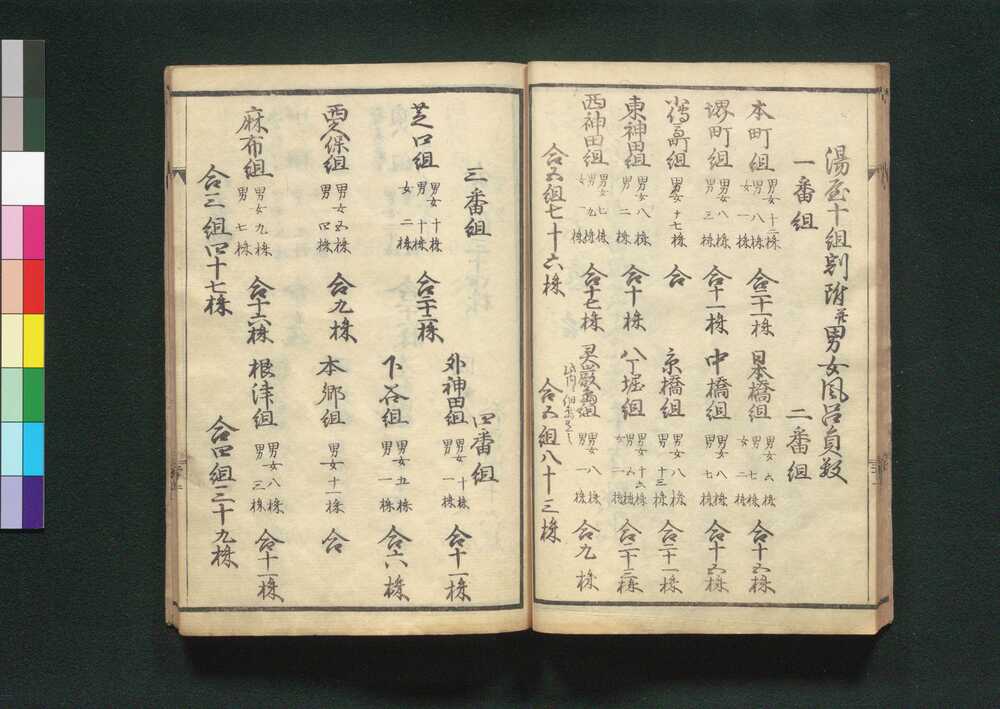 湯屋十組別附并男女風呂員数
一番組
本町組 男女十二株 男八株 女一株 合二十一株
堺町組 男女八株 男三株 合十一株
小傳馬町組 男女十七株 合
東神田組 男女八株 男二株 合十株
西神田組 男女七株 男九株 女一株 合十七株
合五組七十六株
二番組
日本橋組 男女六株 男七株 女二株 合十五株
中橋組 男女八株 男七株 合十五株
京橋組 男女八株 男十三株 合二十一株
八丁堀組 男女十六株 男六株 女一株 合二十三株
霊巌島組 男女八株 男一株 合九株
合五組八十三株
三番組
芝口組 男女十株 男十株 女二株 合二十二株
西久保組 男女五株 男四株 合九株
麻布組 男女九株 男七株 合十六株
合三組四十七株
四番組
外神田組 男女十株 男一株 合十一株
下谷組 男女五株 男一株 合六株
本郷組 男女十一株 合
根津組 男女八株 男三株 合十一株
合四組三十九株